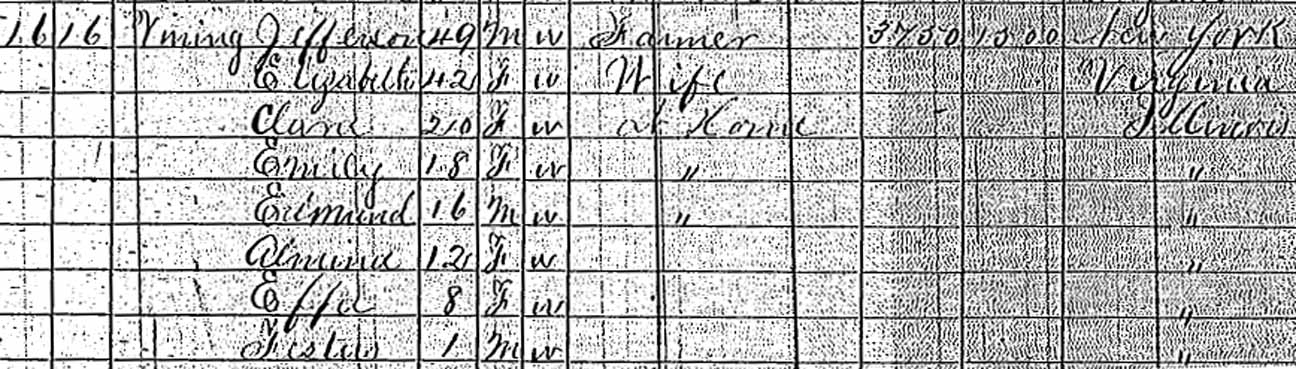 16 16 Vining Jefferson 49 M W Farmer 3750 1500 New York
Elizabeth 42 F W Wife Virginia
Clara 20 F W at Home Illinois
Emily 18 F W " "
Edmund 16 M W " "
Almina 12 F W "
Effa 8 F W "
Festus 1 M W "